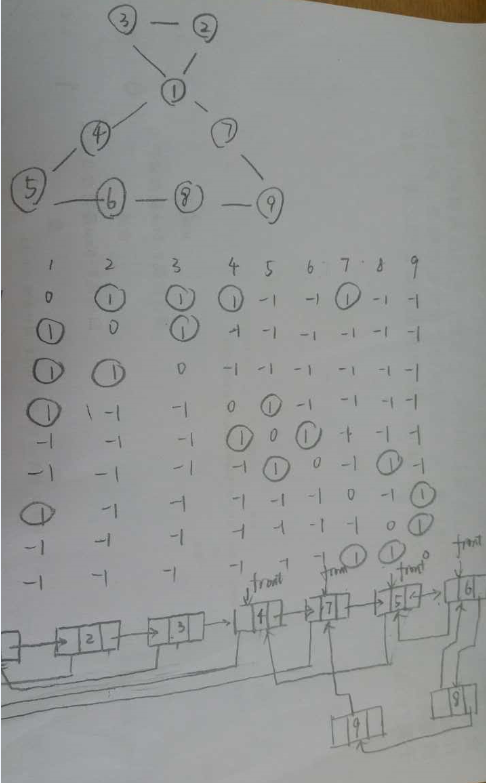 3 2
1
4 7
5 6 8 9
1 2 3 4 5 6 7 8 9
0 1 1 1 -1 -1 1 -1 -1
1 0 1 -1 -1 -1 -1 -1 -1
1 1 0 -1 -1 -1 -1 -1 -1
1 -1 -1 0 1 -1 -1 -1 -1
-1 -1 -1 1 0 1 -1 -1 -1
-1 -1 -1 -1 1 0 -1 1 -1
1 -1 -1 -1 -1 -1 0 -1 1
-1 -1 -1 -1 -1 -1 -1 0 1
-1 -1 -1 -1 -1 -1 1 1
front front front front
2 3 4 7 5 6
9 8